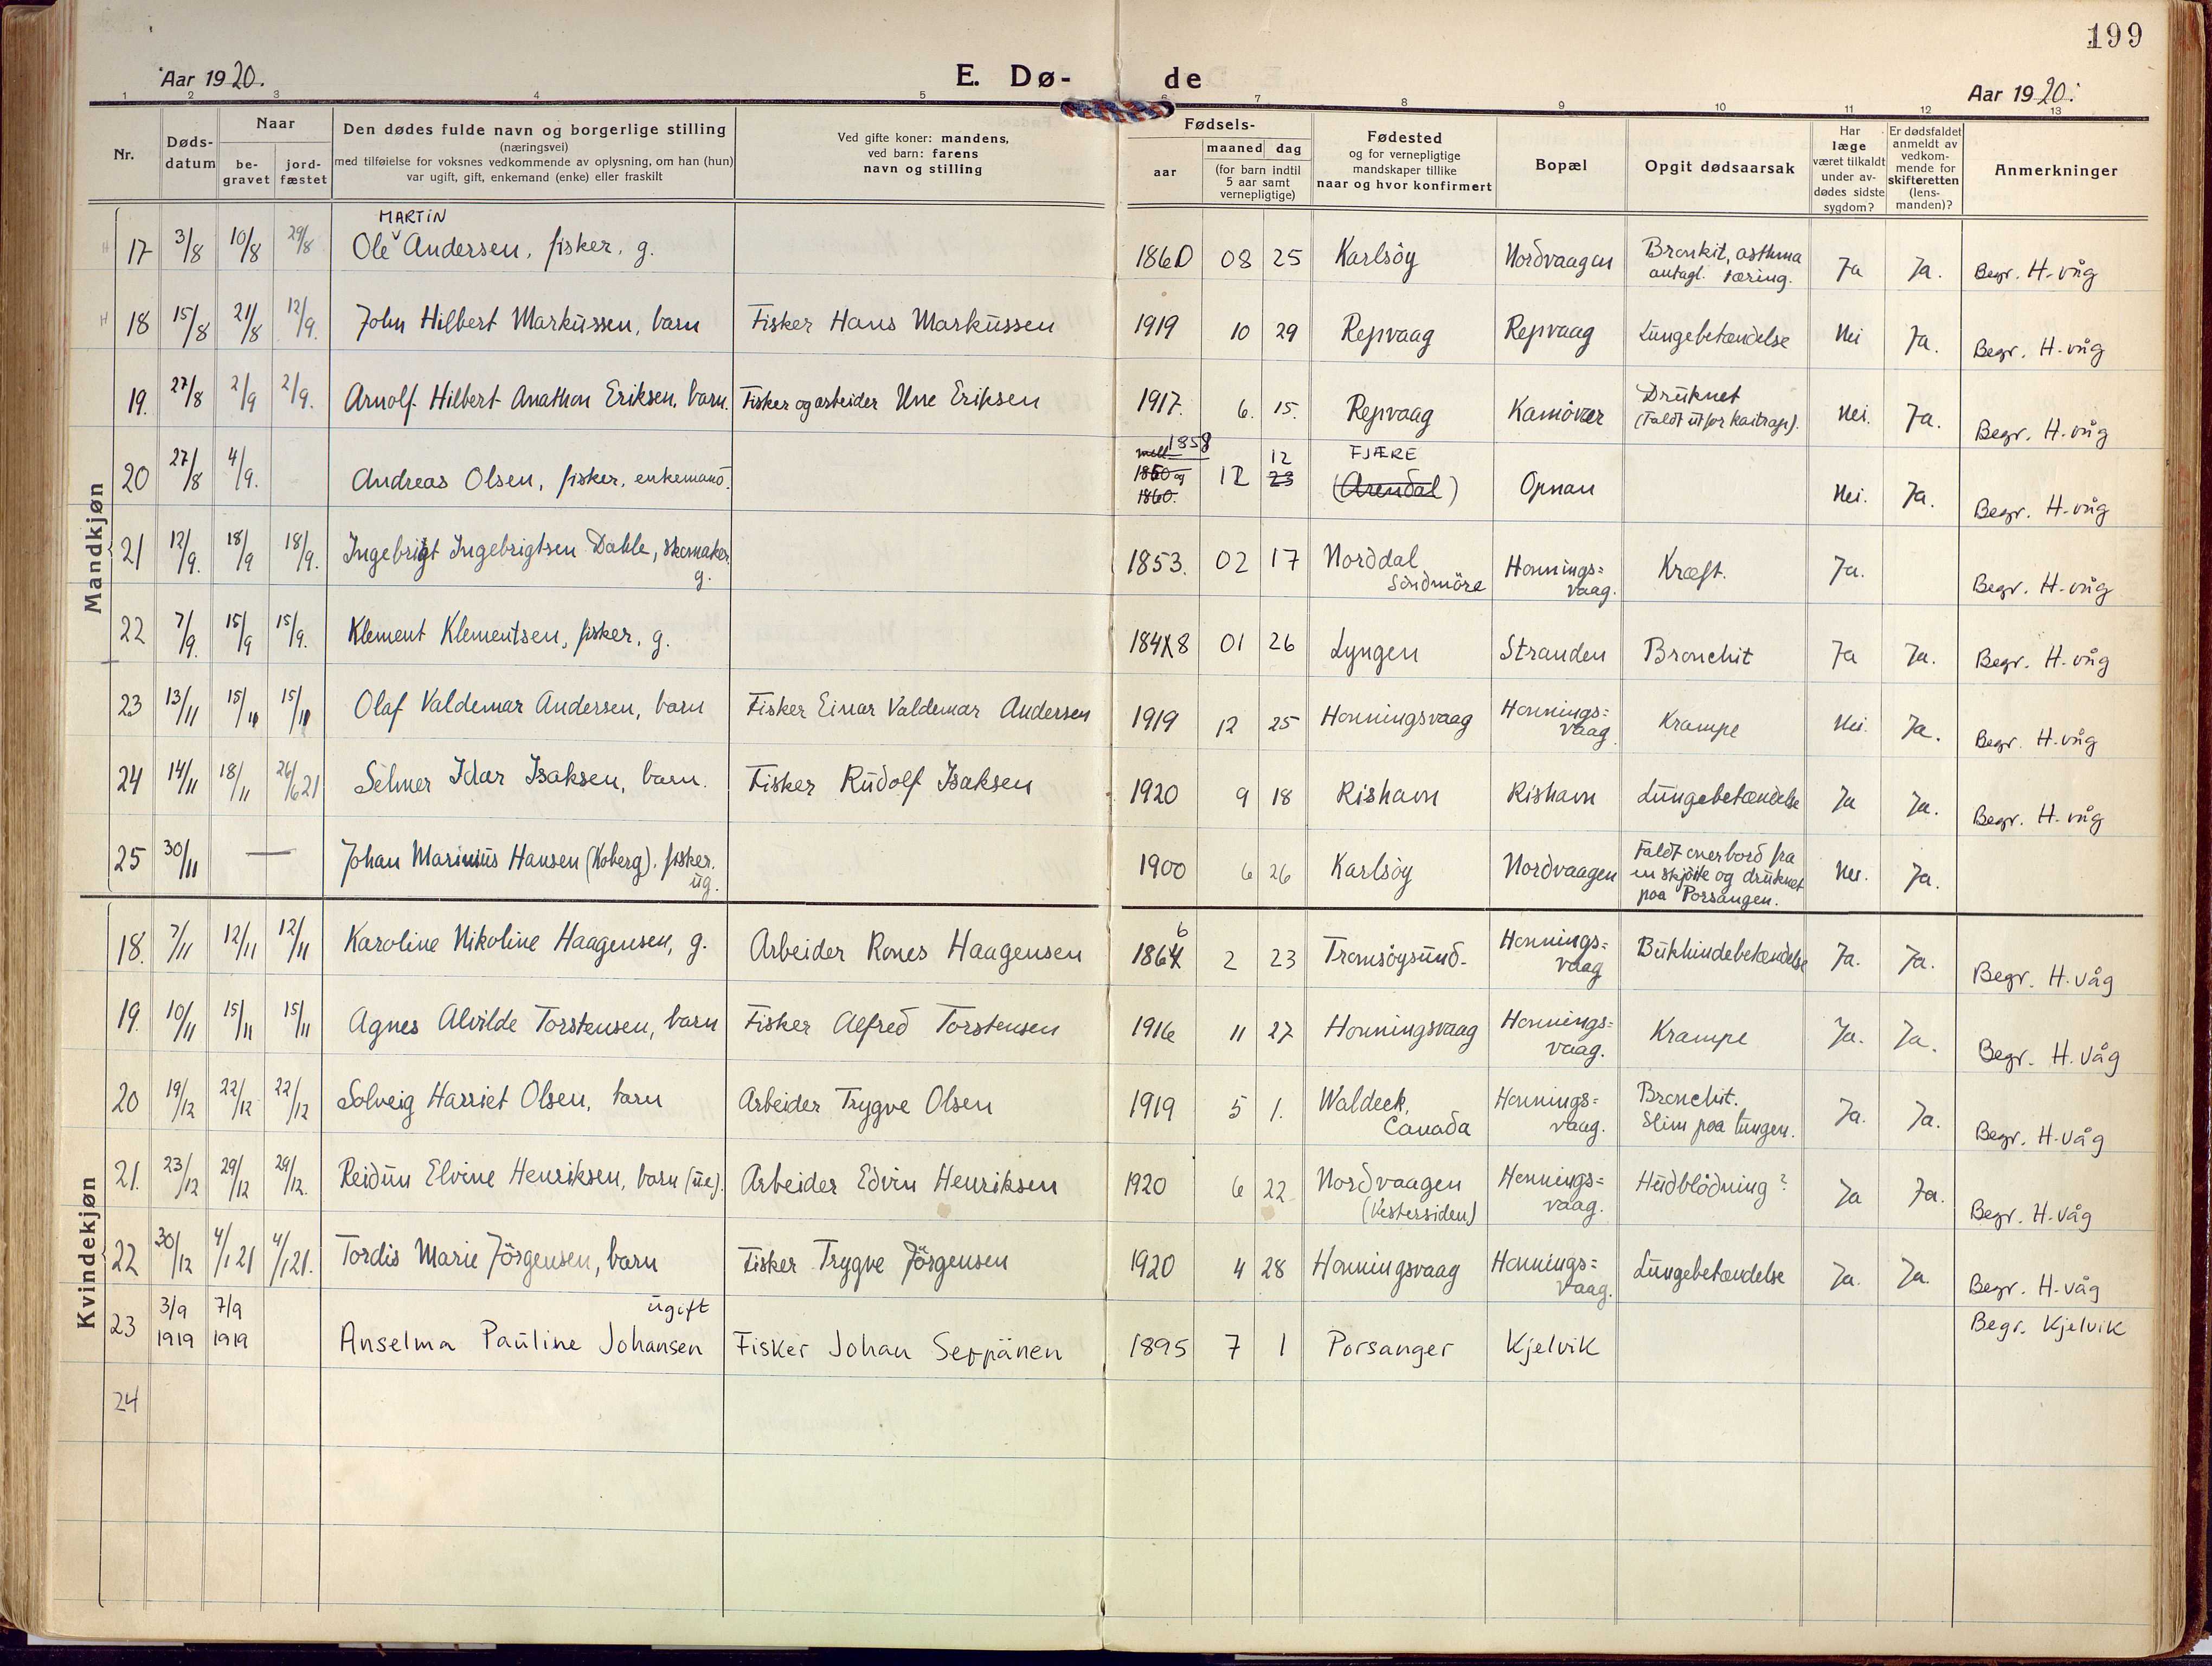 199
Aar 1920.
E. Dø- de
Aar 1920.
1 2 3 4 5 6 7 8 9 10 11 12 13
Nr.
Døds-
datum
Naar
be-
gravet
jord-
fæstet
Den dødes fulde navn og borgerlige stilling
(næringsvei)
med tilføielse for voksnes vedkommende av oplysning, om han (hun)
var ugift, gift, enkemand (enke) eller fraskilt
Ved gifte koner: mandens,
ved barn: farens
navn og stilling
Fødsels-
aar
maaned dag
(for barn indtil
5 aar samt
vernepligtige)
Fødested
og for vernepligtige
mandskaper tillike
naar og hvor konfirmert
Bopæl
Opgit dødsaarsak
Har
læge
været tilkaldt
under av-
dødes sidste
sygdom?
Er dødsfaldet
anmeldt av
vedkom-
mende for
skifteretten
(lens-
manden)?
Anmerkninger
Mandkjøn
MARTIN
17 3/8 10/8 29/8 Ole Andersen, fisker, g. 1860 08 25 Karlsöy Nordvaagen Bronkit, asthma
antagl. tæring. Ja Ja. Begr. H-våg
18 15/8 21/8 12/9. John Hilbert Markussen, barn Fisker Hans Markussen 1919 10 29 Repvaag Repvaag Lungebetændelse Nei Ja. Begr. H-våg
19. 27/8 2/9 2/9. Arnolf Hilbert Anathon Eriksen, barn. Fisker og arbeider Une Eriksen 1917. 6. 15. Repvaag Kamöver Druknet
(Faldt utfor kaitrap). Nei. Ja. Begr. H-våg
mell 1858 12 FJÆRE
20 27/8 4/9. Andreas Olsen, fisker, enkemand. 1850 og 12 23 (Arendal) Opnan Nei. Ja. Begr. H-våg
1860.
21 12/9. 18/9 18/9. Ingebrigt Ingebrigtsen Dahle, skomaker,
g. 1853. 02 17 Norddal
Söndmöre Honnings=
vaag. Kræft. Ja. Begr. H-våg
22 7/9. 15/9 15/9. Klement Klementsen, fisker, g. 184X8 01 26 Lyngen Stranden Bronchit Ja Ja. Begr. H-våg
23 13/11 15/11 15/11 Olaf Valdemar Andersen, barn Fisker Einar Valdemar Andersen 1919 12 25 Honningsvaag Honnings=
vaag Krampe Nei. Ja. Begr. H-våg
24 14/11 18/11 26/6 21 Selmer Idar Isaksen, barn. Fisker Rudolf Isaksen 1920 9 18 Rishavn Rishavn Lungebetændelse Ja Ja. Begr. H-våg
25 30/11 — Johan Marinius Hansen (Koberg). fisker.
ug. 1900 6 26 Karlsöy Nordvaagen Faldt overbord fra
en skjöite og druknet
paa Porsangen. Nei. Ja.
Kvindekjøn
18. 7/11 12/11 12/11 Karoline Nikoline Haagensen, g. Arbeider Rones Haagensen 6
1864 2 23 Tromsöysund. Honnings=
vaag Bukhindebetændelse Ja. Ja. Begr. H.våg
19. 10/11 15/11 15/11 Agnes Alvilde Torstensen, barn Fisker Alfred Torstensen 1916 11 27 Honningsvaag Honnings=
vaag. Krampe Ja. Ja. Begr. H.våg
20 19/12 22/12 22/12 Solveig Harriet Olsen, barn Arbeider Trygve Olsen 1919 5 1. Waldeck,
Canada Honnings=
vaag. Bronchit.
Slim paa lungen. Ja. Ja. Begr. H-våg
21. 23/12 29/12 29/12. Reidun Elvine Henriksen, barn (ue). Arbeider Edvin Henriksen 1920 6 22 Nordvaagen
(Vestersiden) Honnings=
vaag. Hudblödning? Ja Ja. Begr. H-våg
22 30/12 4/1 21 4/1 21. Tordis Marie Jörgensen, barn Fisker Trygve Jörgensen 1920 4 28 Honningsvaag Honnings=
vaag. Lungebetændelse Ja. Ja. Begr. H-våg
23 3/9 1919 7/9 1919 ugift
Anselma Pauline Johansen Fisker Johan Seppänen 1895 7 1 Porsanger Kjelvik Begr. Kjelvik
24